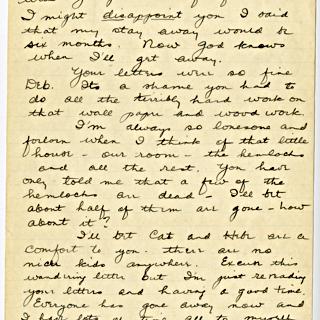 I might disappoint you I said
that my stay away would be
six months. Now God knows
when I'll get away.
Your letters were so fine
Deb. Its a shame you had to
do all the terribly hard work on
that wall paper and wood work.
I'm always so lonesome and
forlorn when I think of that little
house - our room - the hemlocks
and all the rest. You have
only told me that a few of the
hemlocks are dead - I'll bet
about half of them are gone - how
about it?
I'll bet Cat and are a
comfort to you - there are no
nicer kids anywhere. Excuse this
wandering letter but I'm just rereading
your letters and having a good time.
Everyone has gone away now and
I have lots of time all to myself